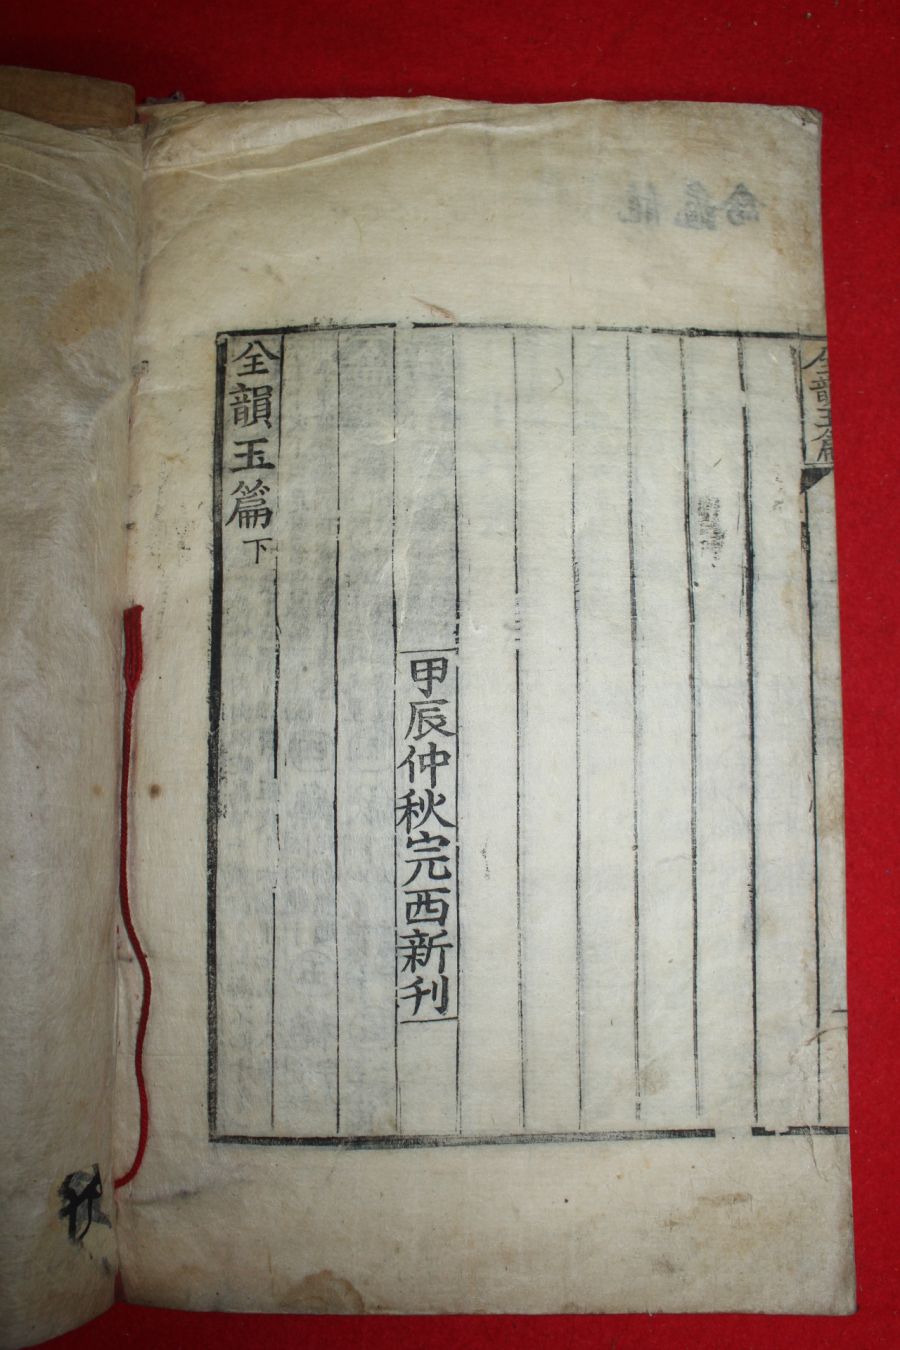 全韻玉篇
甲辰仲秋完西新刋
全韻玉篇下